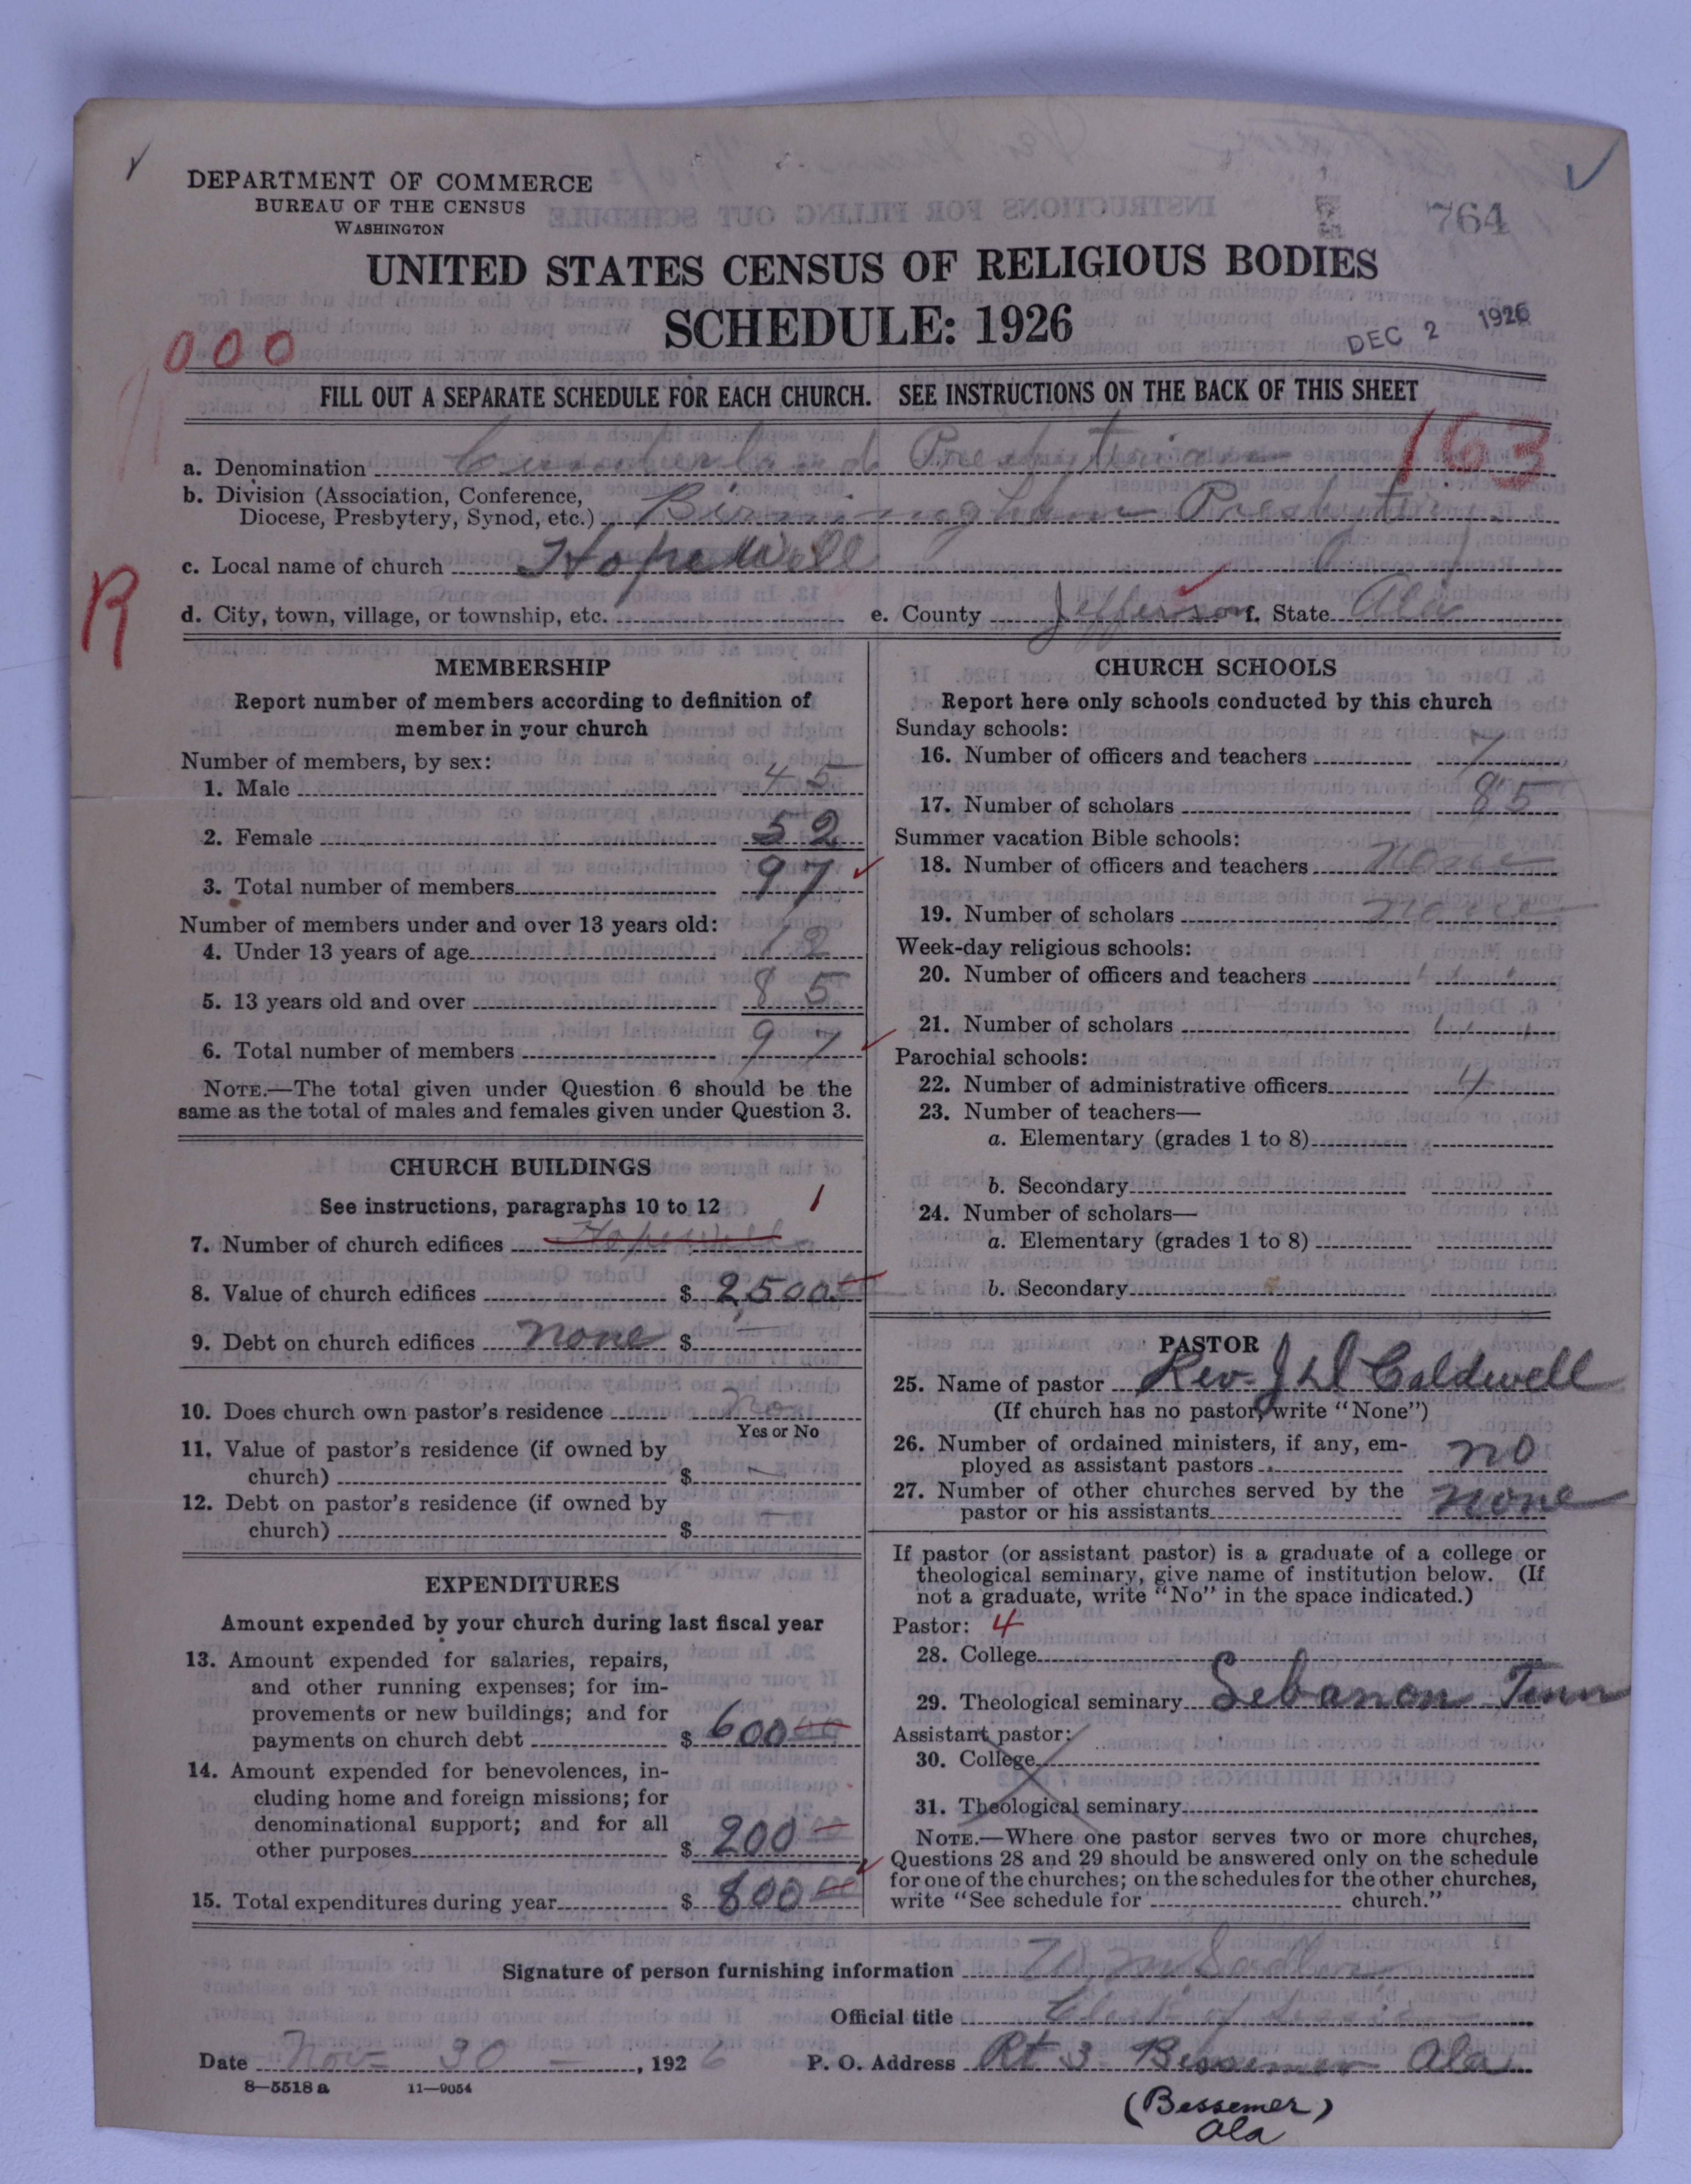 DEPARTMENT OF COMMERCE
BUREAU OF THE CENSUS
WASHINGTON
764
UNITED STATES CENSUS OF RELIGIOUS BODIES
SCHEDULE: 1926
DEC 2 1926
000
FILL OUT A SEPARATE SCHEDULE FOR EACH CHURCH. SEE INSTRUCTIONS ON THE BACK OF THIS SHEET
163
a. Denomination Cumberland Presbyterian
b. Division (Association, Conference,
Diocese, Presbytery, Synod, etc.) Birmingham Presbytery
c. Local name of church Hopewell
R
d. City, town, village, or township, etc. e. County Jefferson f. State Ala
MEMBERSHIP
Report number of members according to definition of
member in your church
Number of members, by sex:
1. Male 45
2. Female 52
3. Total number of members 97
Number of members under and over 13 years old:
4. Under 13 years of age 12
5. 13 years old and over 85
6. Total number of members 97
NOTE.—The total given under Question 6 should be the
same as the total of males and females given under Question 3.
CHURCH BUILDINGS
See instructions, paragraphs 10 to 12 1
7. Number of church edifices Hopewell
8. Value of church edifices $ 2,500 00
9. Debt on church edifices none $
10. Does church own pastor's residence No
Yes or No
11. Value of pastor's residence (if owned by
church) $
12. Debt on pastor's residence (if owned by
church) $
EXPENDITURES
Amount expended by your church during last fiscal year
13. Amount expended for salaries, repairs,
and other running expenses; for im-
provements or new buildings; and for
payments on church debt $ 600 00
14. Amount expended for benevolences, in-
cluding home and foreign missions; for
denominational support; and for all
other purposes $ 200 00
15. Total expenditures during year $ 800 00
CHURCH SCHOOLS
Report here only schools conducted by this church
Sunday schools:
16. Number of officers and teachers 7
17. Number of scholars 85
Summer vacation Bible schools:
18. Number of officers and teachers none
19. Number of scholars none
Week-day religious schools:
20. Number of officers and teachers
21. Number of scholars
Parochial schools:
22. Number of administrative officers
23. Number of teachers—
a. Elementary (grades 1 to 8)
b. Secondary
24. Number of scholars—
a. Elementary (grades 1 to 8)
b. Secondary
PASTOR
25. Name of pastor Rev. J W Caldwell
(If church has no pastor, write "None")
26. Number of ordained ministers, if any, em-
ployed as assistant pastors no
27. Number of other churches served by the
pastor or his assistants none
If pastor (or assistant pastor) is a graduate of a college or
theological seminary, give name of institution below. (If
not a graduate, write "No" in the space indicated.)
Pastor: 4
28. College
29. Theological seminary Lebanon Tenn
Assistant pastor:
30. College
31. Theological seminary
NOTE.—Where one pastor serves two or more churches,
Questions 28 and 29 should be answered only on the schedule
for one of the churches; on the schedules for the other churches,
write "See schedule for church."
Signature of person furnishing information
Official title Clerk of session
Date Nov 30, 1926 P. O. Address Rt 3 Bessemer Ala
8—5518 a 11—9054
(Bessemer)
Ala